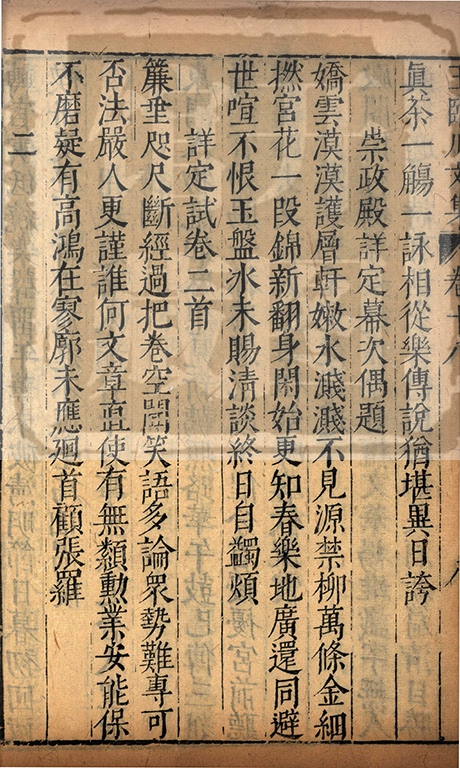 王臨川文集 卷十八 八
真茶一觴一詠相從樂傳說猶堪異日誇
崇政殿詳定幕次偶題
嬌雲漠漠護層軒嫩水濺濺不見源禁柳萬條金細
撚宮花一段錦新翻身閑始更知春樂地廣還同避
世喧不恨玉盤水未賜清談終日自蠲煩
詳定試卷二首
簾垂咫尺斷經過把卷空聞笑語多論衆勢難專可
否法嚴人更謹誰何文章直使有無纇勳業安能保
不磨疑有高鴻在寥廓未應廻首顧張羅
二